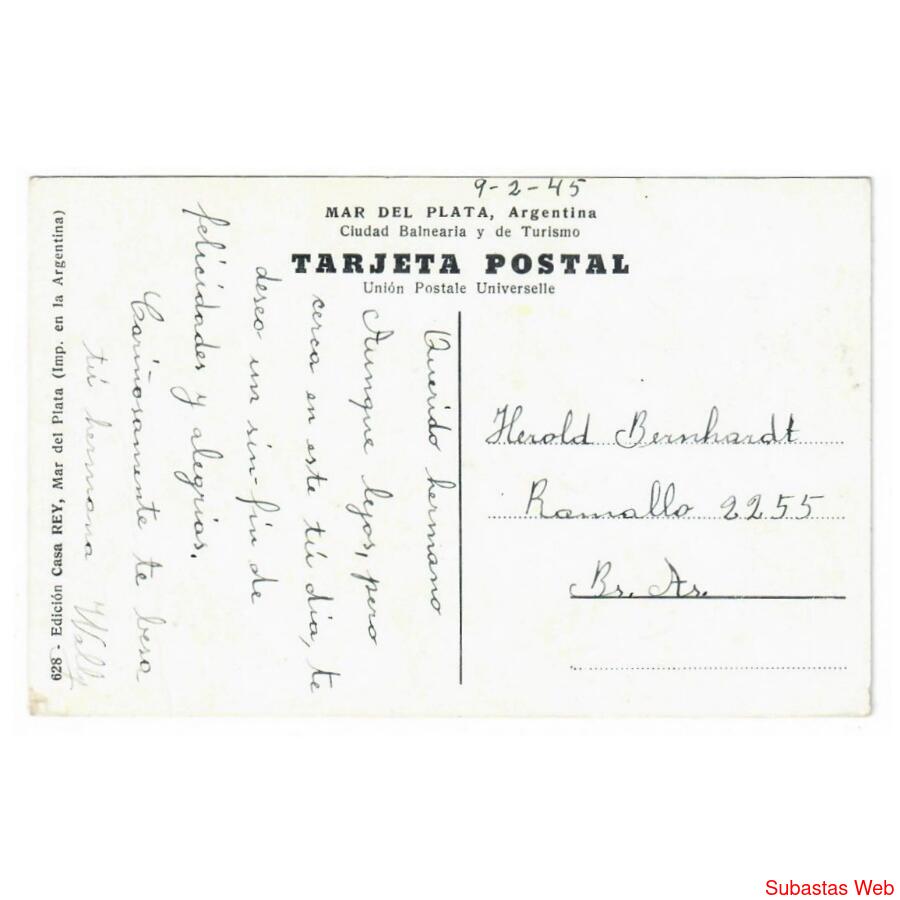 9-2-45
MAR DEL PLATA, Argentina
Ciudad Balnearia y de Turismo
TARJETA POSTAL
Unión Postale Universelle
Querido hermano
Aunque lejos, pero
cerca en este tú día, te
deseo un sin-fin de
felicidades y alegrias.
Cariñosamente te besa
tú hermana Wally
Herold Bernhardt
Ramallo 2255
Bs. As.
628 - Edición Casa REY, Mar del Plata (Imp. en la Argentina)
Subastas Web